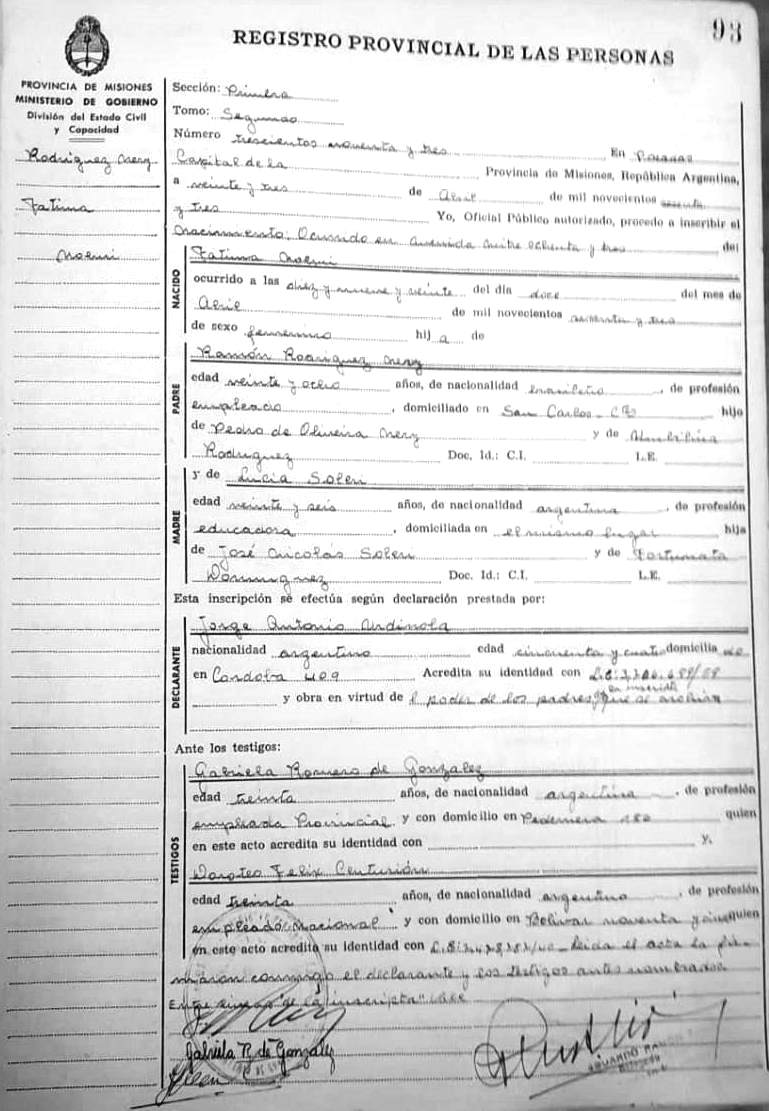 93
REGISTRO PROVINCIAL DE LAS PERSONAS
PROVINCIA DE MISIONES
MINISTERIO DE GOBIERNO
División del Estado Civil
y Capacidad
Rodriguez Nerz
Fatima
Noemi
Sección: Primera
Tomo: Segundo
Número trescientos noventa y tres En Posadas
Capital de la Provincia de Misiones, República Argentina,
a veinte y tres de Abril de mil novecientos
y tres Yo, Oficial Público autorizado, procedo a inscribir el
Nacimiento: Ocurrido en Avenida Mitre ochenta y tres del
NACIDO
Fatima Noemi
ocurrido a las diez y nueve y veinte del día doce del mes de
Abril de mil novecientos y tres
de sexo femenino hij a de
PADRE
Ramón Rodriguez Nerz
edad veinte y ocho años, de nacionalidad brasileño, de profesión
empleado, domiciliado en San Carlos - hijo
de Pedro de Oliveira Nerz y de
Rodriguez Doc. Id.: C.I. L.E.
MADRE
y de Lucia Soleri
edad veinte y seis años, de nacionalidad argentina, de profesión
educadora, domiciliada en el mismo lugar hija
de José Nicolás Soleri y de Fortunata
Dominguez Doc. Id.: C.I. L.E.
Esta inscripción se efectúa según declaración prestada por:
DECLARANTE
Jorge Antonio Urdinola
nacionalidad argentino edad cincuenta y cuatro domicilia do
en Cordoba 409 Acredita su identidad con
y obra en virtud de l poder de los padres que se archiva
Ante los testigos:
TESTIGOS
Gabriela Romero de Gonzalez
edad treinta años, de nacionalidad argentina, de profesión
empleada Provincial y con domicilio en Pedernera 180 quien
en este acto acredita su identidad con y,
Doroteo Felix Centurión
edad treinta años, de nacionalidad argentino, de profesión
empleado Nacional y con domicilio en Bolivar noventa y quien
en este acto acredita su identidad con Leida el acta la fir-
maron conmigo el declarante y los testigos antes nombrados.
Entre lineas "de la inscripta" Vale
Gabriela R. de Gonzalez
EDUARDO